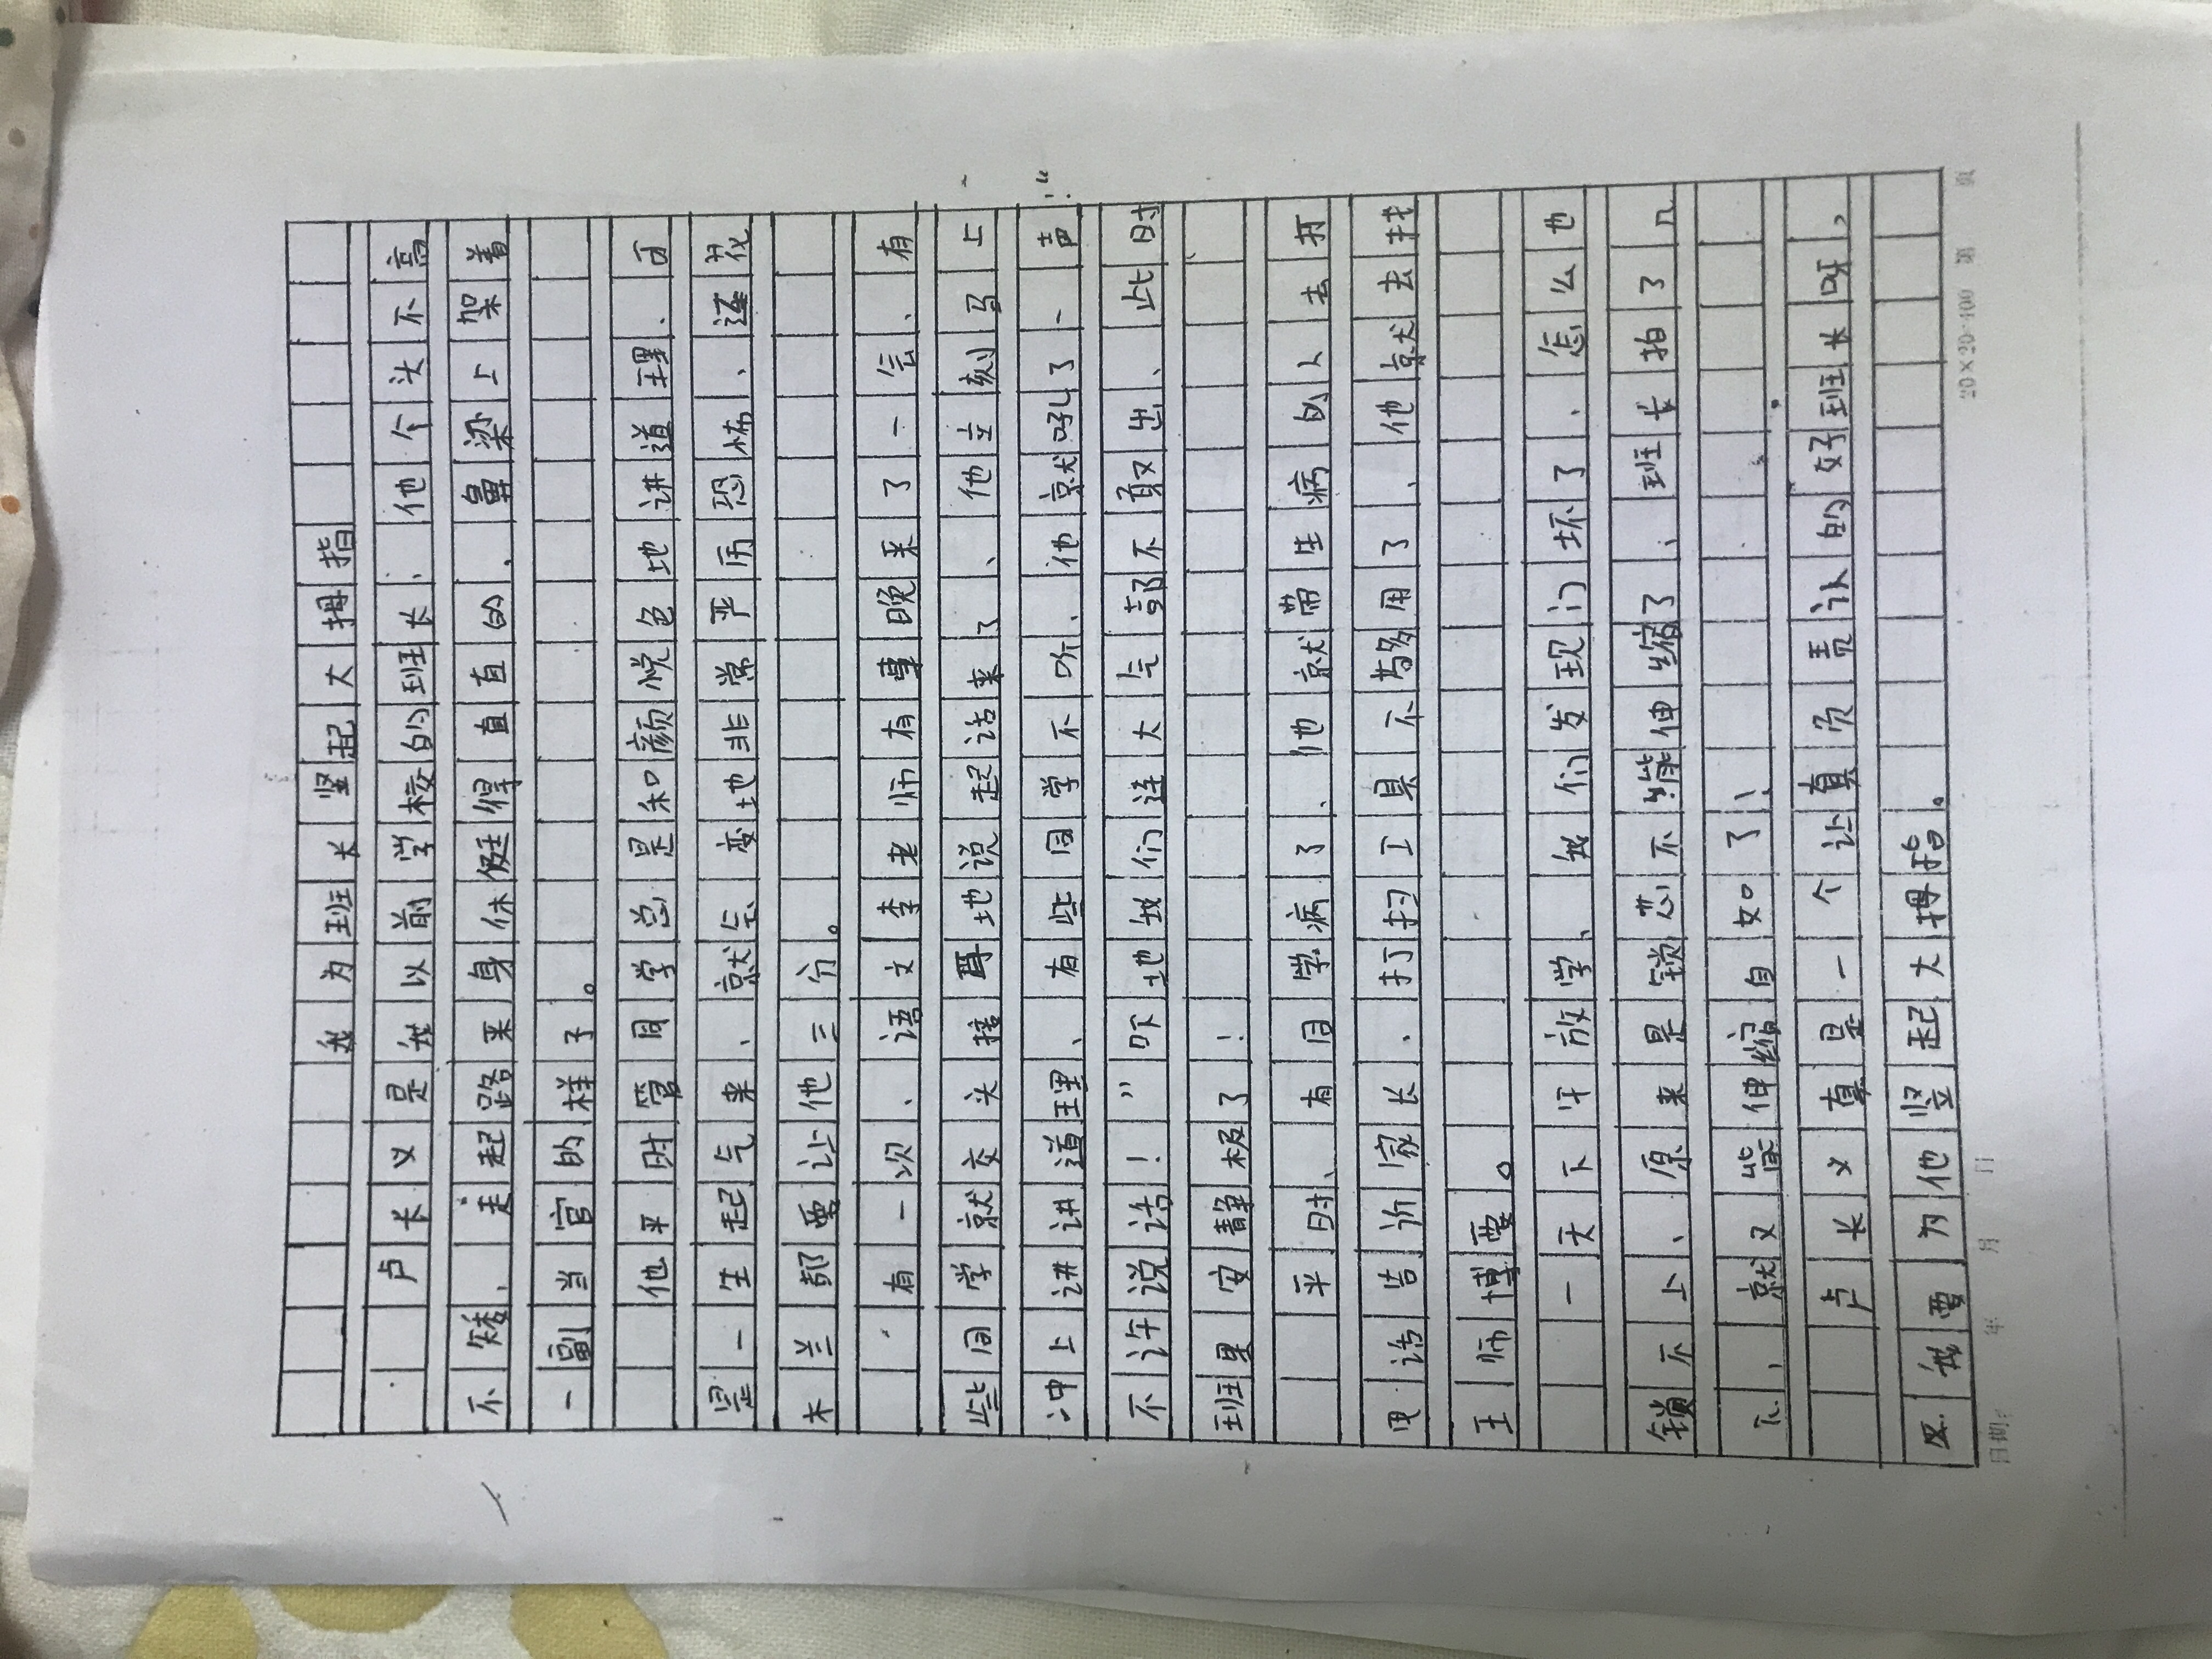 我为班长竖起大拇指
卢长义是我以前学校的班长，他个头不高
不矮，走起路来身体挺得直直的，鼻梁上架着
一副当官的样子。
他平时管同学总是和颜悦色地讲道理，可
是一生起气来，就会变地非常严历恐怖，连花
木兰都要让他三分。
有一次，语文李老师有事晚来了一会，有
些同学就交头接耳地说起话来了，他立刻马上
冲上讲讲道理，有些同学不听，他就吼了一声:“
不许说话！”吓地我们连大气都不敢出，此时
班里安静极了！
平时，有同学病了，他就带生病的人去打
电话告诉家长，打扫工具不够用了，他就去找
王师博要。
一天下午放学，我们发现门坏了，怎么也
锁不上，原来是锁芯不能伸缩了，班长拍了几
下，就又能伸缩自如了！
卢长义真是一个让真负责认的好班长呀，
我要为他竖起大拇指。
日期: 年 月 日 20×20=400 第 页